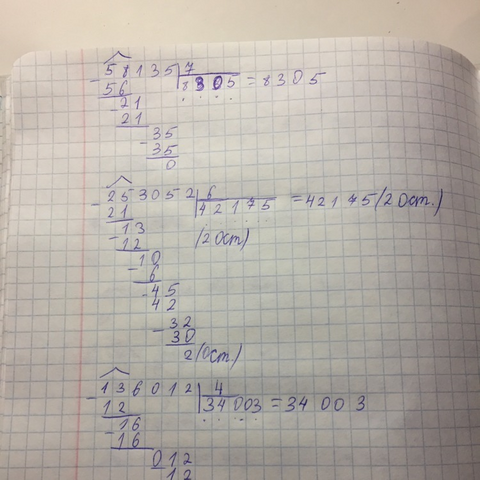 58135 | 7
56 8305 = 8305
21
21
35
35
0
253052 | 6
21 42175 = 42175 (2 ост.)
13 (2 ост)
12
10
6
45
42
32
30
2 (ост.)
136012 | 4
12 34003 = 34 003
16
16
012
12